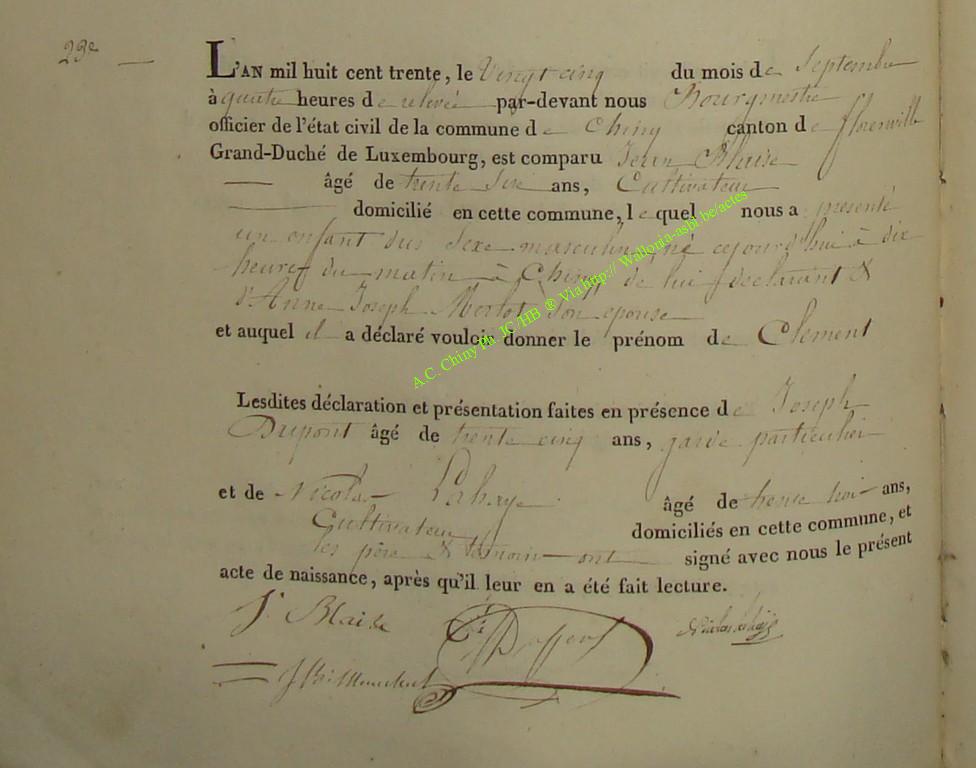 23e
L'AN mil huit cent trente, le Vingt cinq du mois de Septembre
à quatre heures de relevée par-devant nous Bourgmestre
officier de l'état civil de la commune de Chiny canton de florenville
Grand-Duché de Luxembourg, est comparu Jean Blaise
âgé de trente Six ans, Cultivateur
domicilié en cette commune, lequel nous a présenté
un enfant du Sexe masculin né cejourd'hui à dix
heures du matin à Chiny de lui déclarant &
d'Anne Joseph Merlot Son epouse
et auquel il a déclaré vouloir donner le prénom de Clement
Lesdites déclaration et présentation faites en présence de Joseph
Dupont âgé de trente cinq ans, garde particulier
et de Nicolas Lahaye âgé de trente trois ans,
Cultivateur domiciliés en cette commune, et
les père & témoins ont signé avec nous le présent
acte de naissance, après qu'il leur en a été fait lecture.
J. Blaise
A.C. Chiny Ph. JC/HB ® Via http:// Wallonia-asbl.be/actes